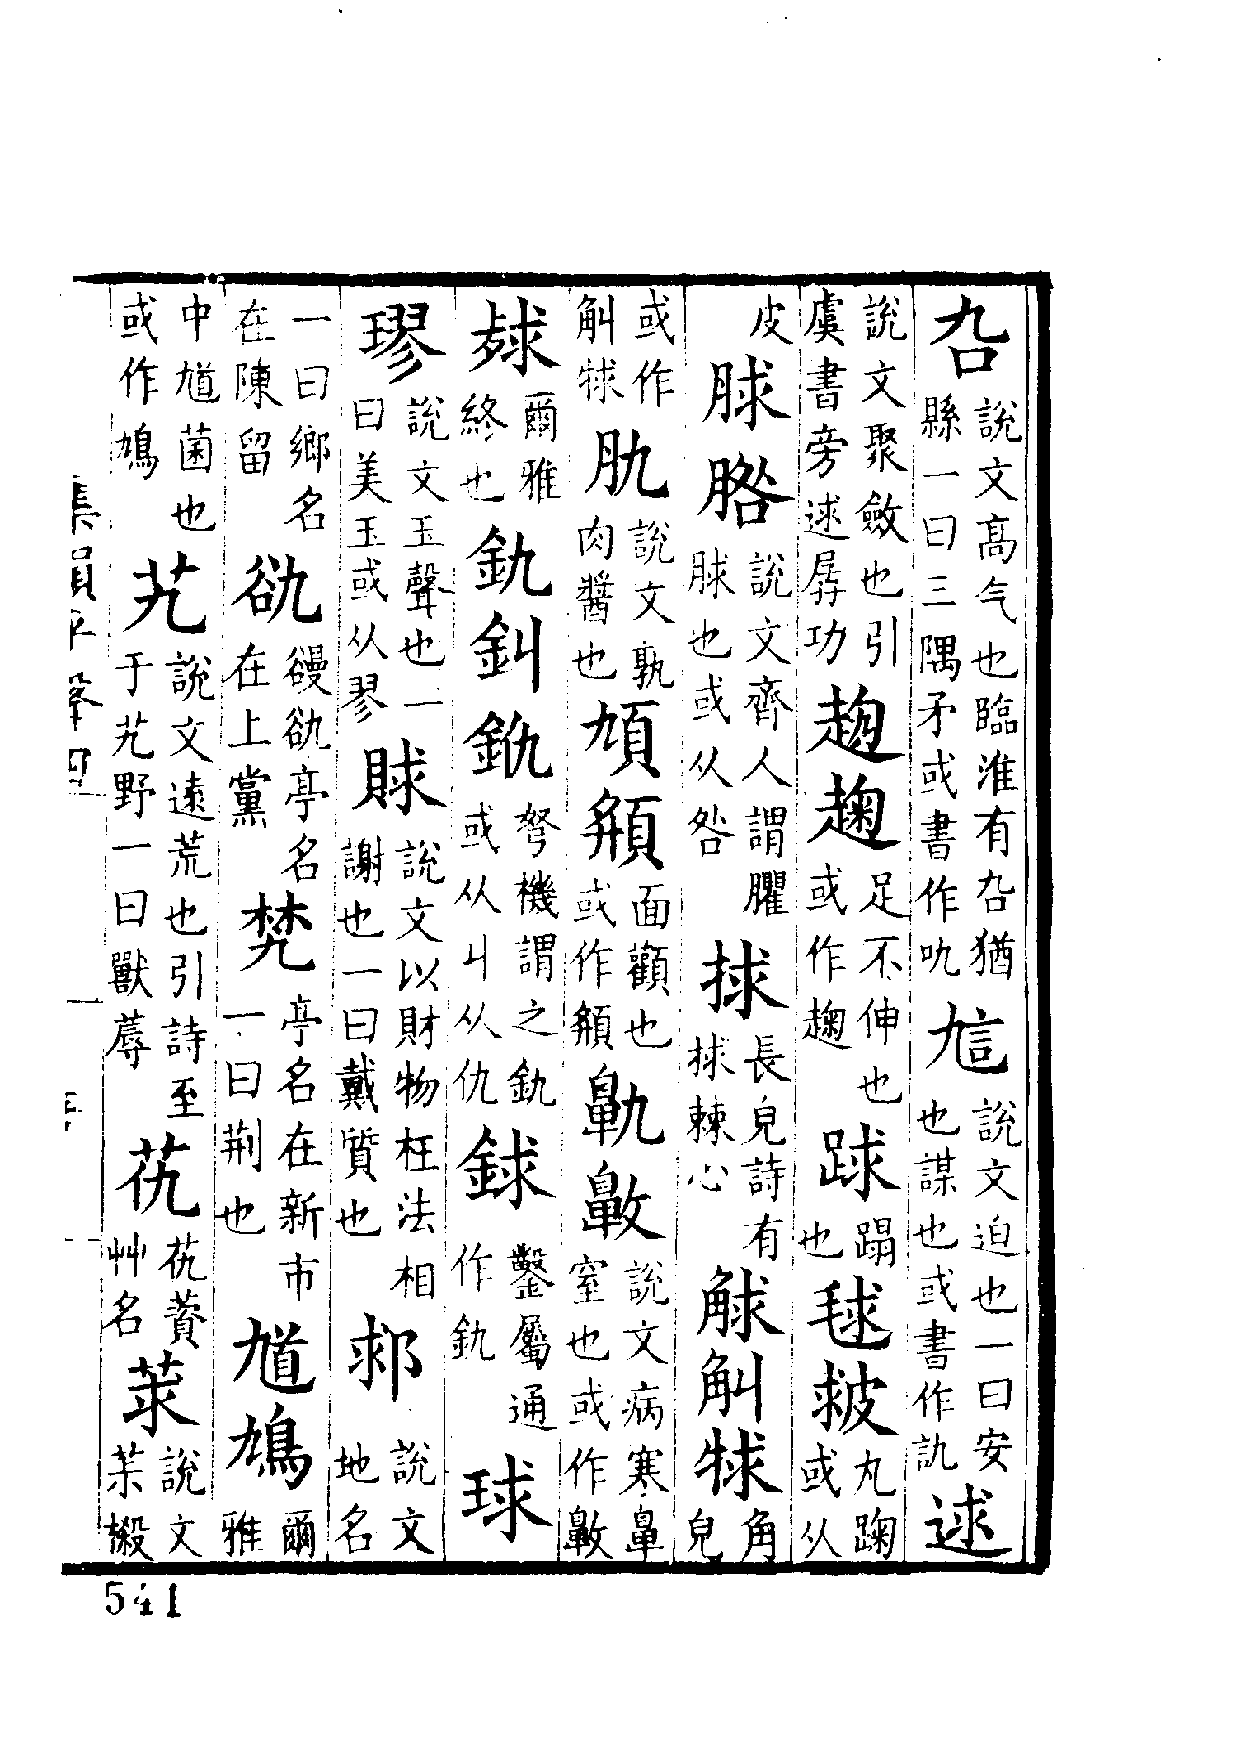 厹說文高气也臨淮有厹猶縣一曰三隅矛或書作叴訄說文迫也一曰安也謀也或書作訄逑
說文聚斂也引虞書旁逑孱功趜足不伸也或作趜䟵蹋也毬𣬠丸踘或从
皮脙𦞭說文齊人謂臞脙也或从咎捄長皃詩有捄棘心觩觓㧨角皃
或作觓㧨肍說文孰肉醬也頄頯面顴也或作頯鼽䶊說文病寒鼻窒也或作䶊
殏爾雅終也釚釓䤛弩機謂之釚或从丩从仇銶鑿屬通作釚球
璆說文玉聲也一曰美玉或从翏賕說文以財物枉法相謝也一曰戴質也邟說文地名
一曰鄉名在陳留㕤䜱㕤亭名在上黨梵亭名在新市一曰荆也馗鳩爾雅
中馗菌也或作鳩艽說文遠荒也引詩至于艽野一曰獸蓐艽艽薋艸名莍說文茮樧
集韻平聲四
541